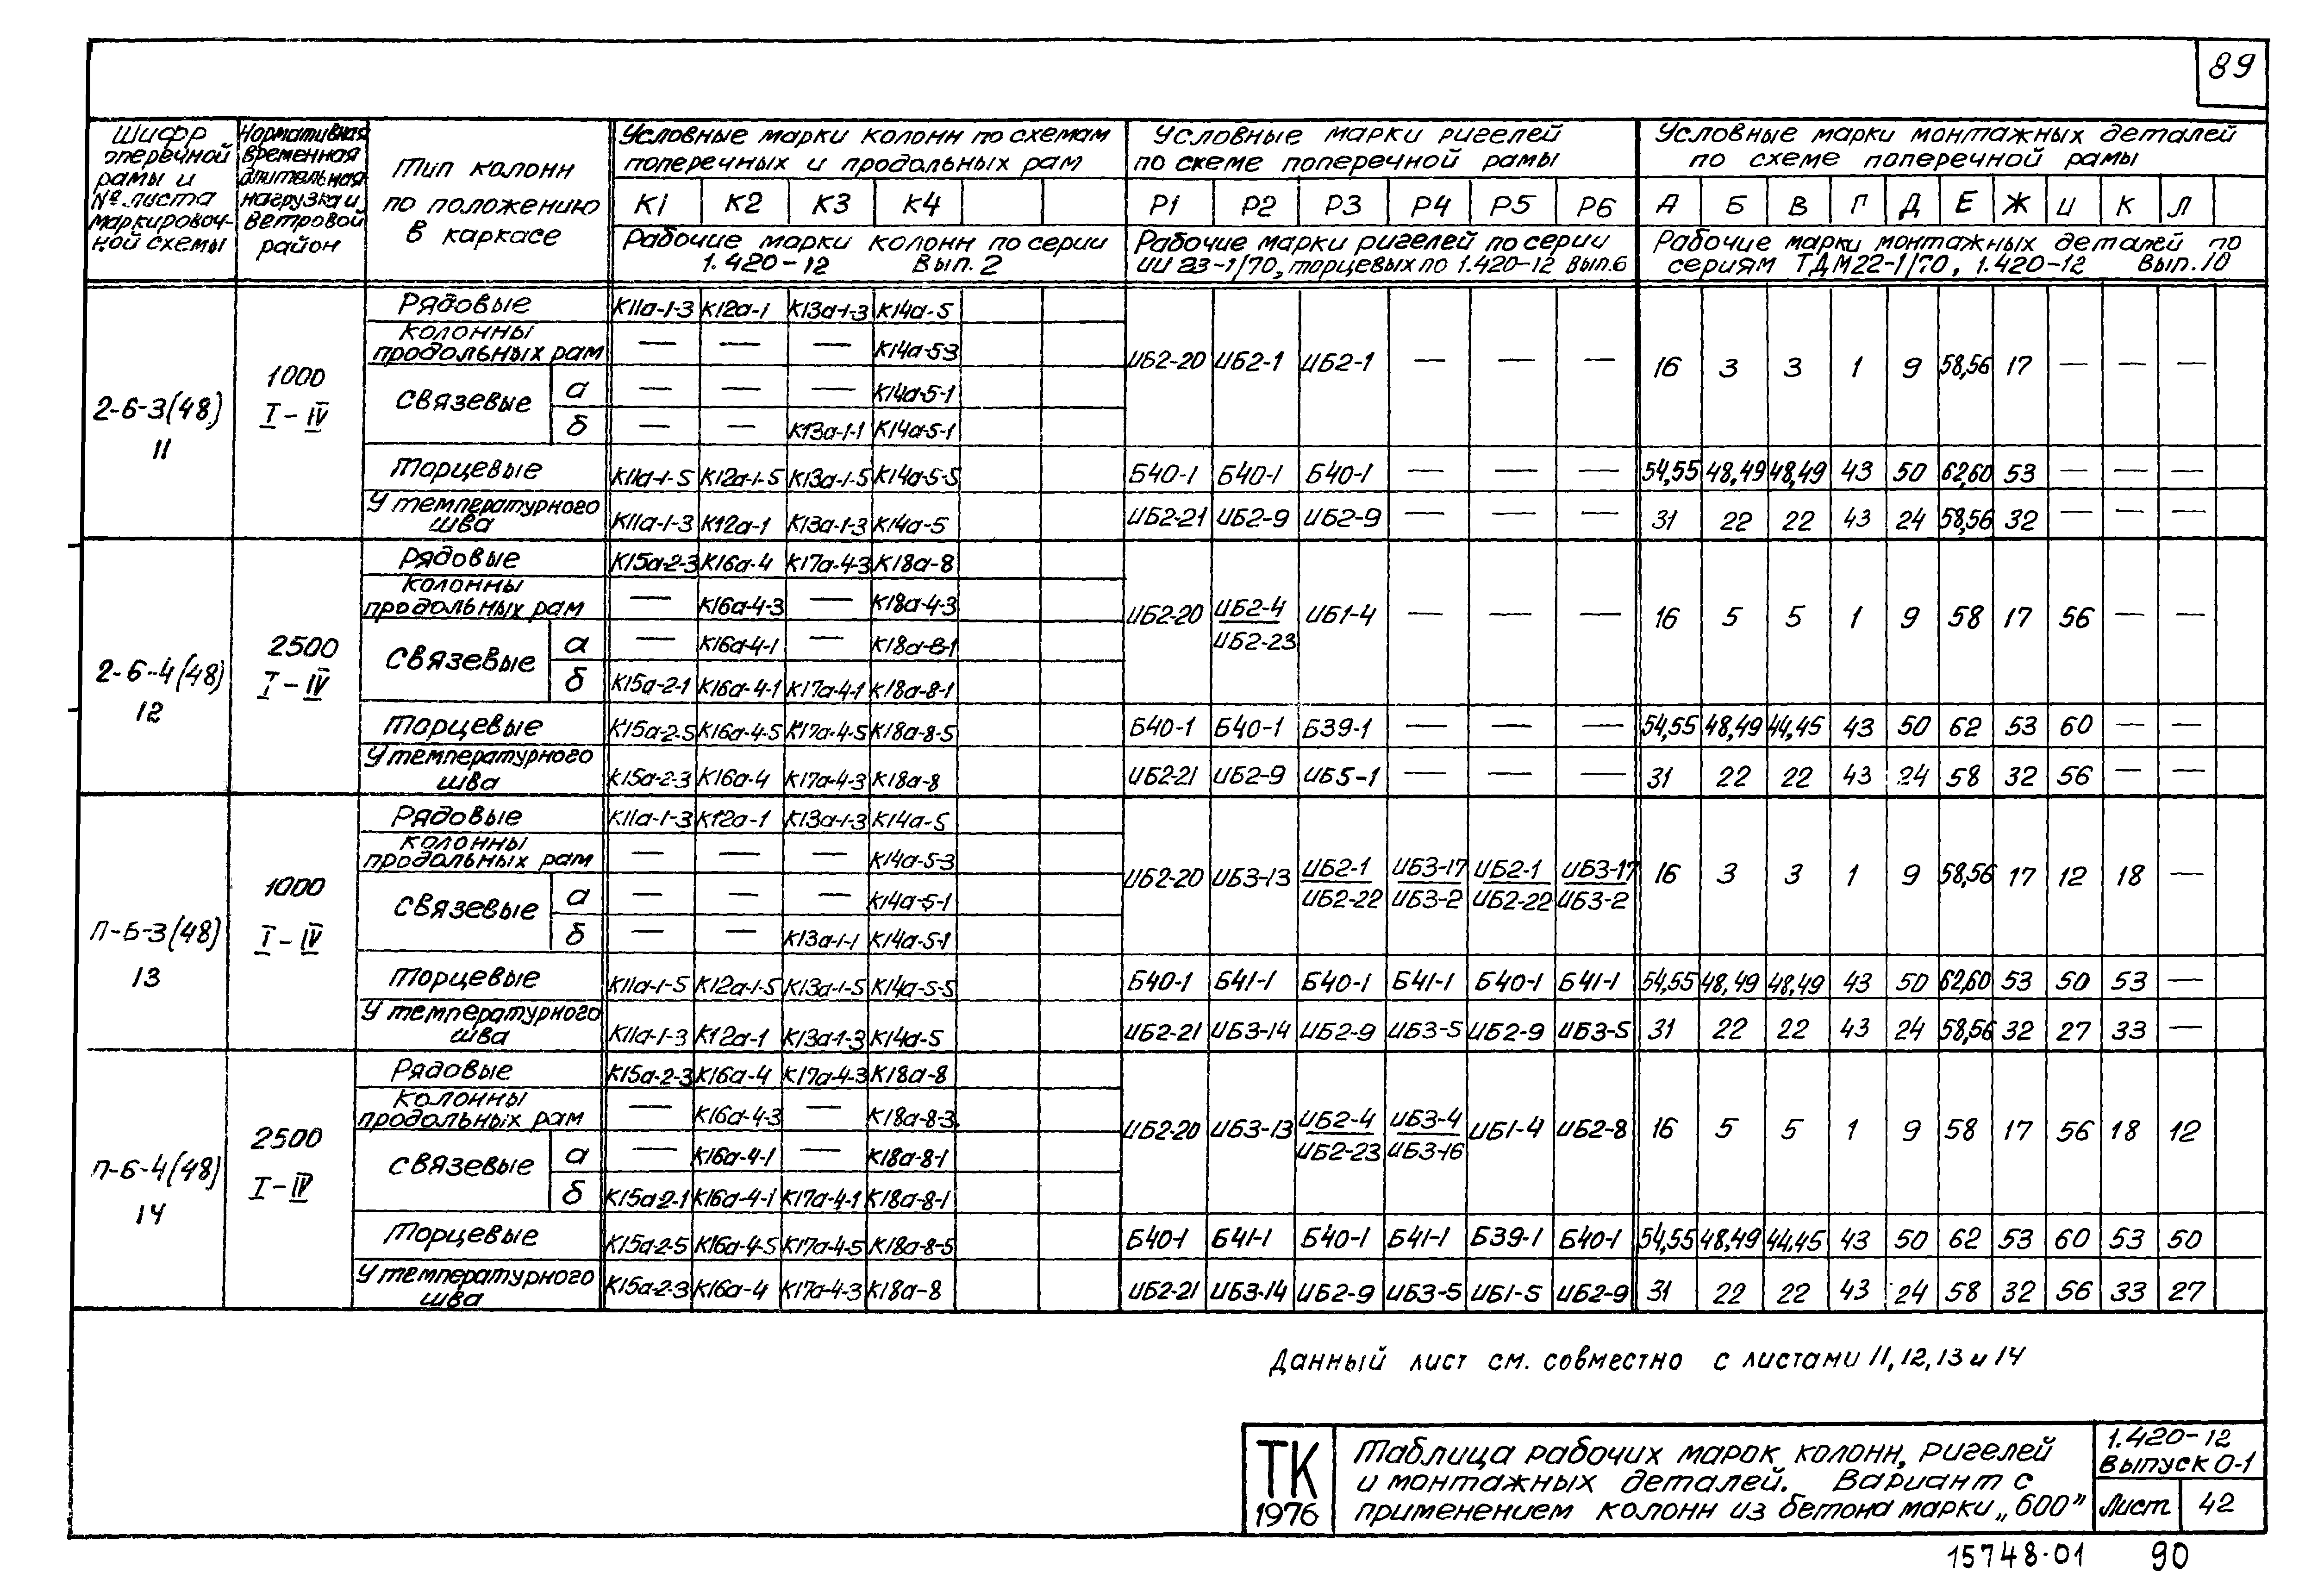 89
Шифр поперечной рамы и № листа маркировочной схемы
Нормативная временная длительная нагрузка и ветровой район
Тип колонн по положению в каркасе
Условные марки колонн по схемам поперечных и продольных рам
Условные марки ригелей по схеме поперечной рамы
Условные марки монтажных деталей по схеме поперечной рамы
К1 К2 К3 К4 Р1 Р2 Р3 Р4 Р5 Р6 А Б В Г Д Е Ж И К Л
Рабочие марки колонн по серии 1.420-12 Вып. 2
Рабочие марки ригелей по серии ИИ 23-1/70, торцевых по 1.420-12 вып.6
Рабочие марки монтажных деталей по сериям ТДМ22-1/70, 1.420-12 Вып.10
2-6-3(48) 11
1000 I-IV
Рядовые К11а-1-3 К12а-1 К13а-1-3 К14а-5
Колонны продольных рам — — — К14а-5-3
ИБ2-20 ИБ2-1 ИБ2-1 — — — 16 3 3 1 9 58,56 17 — — —
Связевые а — — — К14а-5-1
б — — К13а-1-1 К14а-5-1
Торцевые К11а-1-5 К12а-1-5 К13а-1-5 К14а-5-5 Б40-1 Б40-1 Б40-1 — — — 54,55 48,49 48,49 43 50 62,60 53 — — —
У температурного шва К11а-1-3 К12а-1 К13а-1-3 К14а-5 ИБ2-21 ИБ2-9 ИБ2-9 — — — 31 22 22 43 24 58,56 32 — — —
2-6-4(48) 12
2500 I-IV
Рядовые К15а-2-3 К16а-4 К17а-4-3 К18а-8
Колонны продольных рам — К16а-4-3 — К18а-4-3
ИБ2-20 ИБ2-4 ИБ2-23 ИБ1-4 — — — 16 5 5 1 9 58 17 56 — —
Связевые а — К16а-4-1 — К18а-8-1
б К15а-2-1 К16а-4-1 К17а-4-1 К18а-8-1
Торцевые К15а-2-5 К16а-4-5 К17а-4-5 К18а-8-5 Б40-1 Б40-1 Б39-1 — — — 54,55 48,49 44,45 43 50 62 53 60 — —
У температурного шва К15а-2-3 К16а-4 К17а-4-3 К18а-8 ИБ2-21 ИБ2-9 ИБ5-1 — — — 31 22 22 43 24 58 32 56 — —
П-6-3(48) 13
1000 I-IV
Рядовые К11а-1-3 К12а-1 К13а-1-3 К14а-5
Колонны продольных рам — — — К14а-5-3
ИБ2-20 ИБ3-13 ИБ2-1 ИБ2-22 ИБ3-17 ИБ3-2 ИБ2-1 ИБ2-22 ИБ3-17 ИБ3-2 16 3 3 1 9 58,56 17 12 18 —
Связевые а — — — К14а-5-1
б — — К13а-1-1 К14а-5-1
Торцевые К11а-1-5 К12а-1-5 К13а-1-5 К14а-5-5 Б40-1 Б41-1 Б40-1 Б41-1 Б40-1 Б41-1 54,55 48,49 48,49 43 50 62,60 53 50 53 —
У температурного шва К11а-1-3 К12а-1 К13а-1-3 К14а-5 ИБ2-21 ИБ3-14 ИБ2-9 ИБ3-5 ИБ2-9 ИБ3-5 31 22 22 43 24 58,56 32 27 33 —
П-6-4(48) 14
2500 I-IV
Рядовые К15а-2-3 К16а-4 К17а-4-3 К18а-8
Колонны продольных рам — К16а-4-3 — К18а-8-3
ИБ2-20 ИБ3-13 ИБ2-4 ИБ2-23 ИБ3-4 ИБ3-16 ИБ1-4 ИБ2-8 16 5 5 1 9 58 17 56 18 12
Связевые а — К16а-4-1 — К18а-8-1
б К15а-2-1 К16а-4-1 К17а-4-1 К18а-8-1
Торцевые К15а-2-5 К16а-4-5 К17а-4-5 К18а-8-5 Б40-1 Б41-1 Б40-1 Б41-1 Б39-1 Б40-1 54,55 48,49 44,45 43 50 62 53 60 53 50
У температурного шва К15а-2-3 К16а-4 К17а-4-3 К18а-8 ИБ2-21 ИБ3-14 ИБ2-9 ИБ3-5 ИБ1-5 ИБ2-9 31 22 22 43 24 58 32 56 33 27
Данный лист см. совместно с листами 11,12,13 и 14
ТК 1976
Таблица рабочих марок колонн, ригелей
и монтажных деталей. Вариант с
применением колонн из бетона марки „600”
1.420-12
Выпуск 0-1
Лист 42
15748-01 90